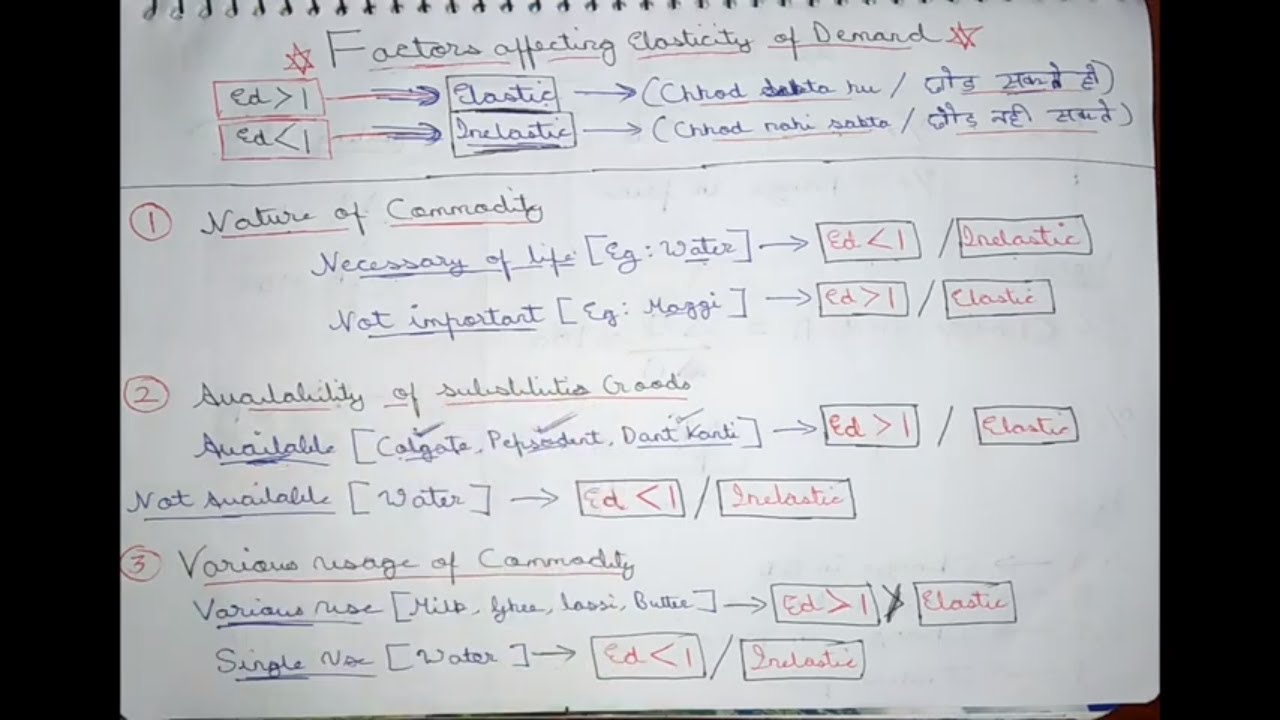 Factors affecting Elasticity of Demand
Ed > 1 → Elastic → (Chhod sakta hu / छोड़ सकते हो)
Ed < 1 → Inelastic → (Chhod nahi sakta / छोड़ नहीं सकते)
① Nature of Commodity
Necessary of life [Eg: Water] → Ed < 1 / Inelastic
Not important [Eg: Maggi] → Ed > 1 / Elastic
② Availability of substitutes Goods
Available [Colgate, Pepsodent, Dant Kanti] → Ed > 1 / Elastic
Not Available [Water] → Ed < 1 / Inelastic
③ Various usage of Commodity
Various use [Milk, Ghee, lassi, Butter] → Ed > 1 / Elastic
Single Use [Water] → Ed < 1 / Inelastic